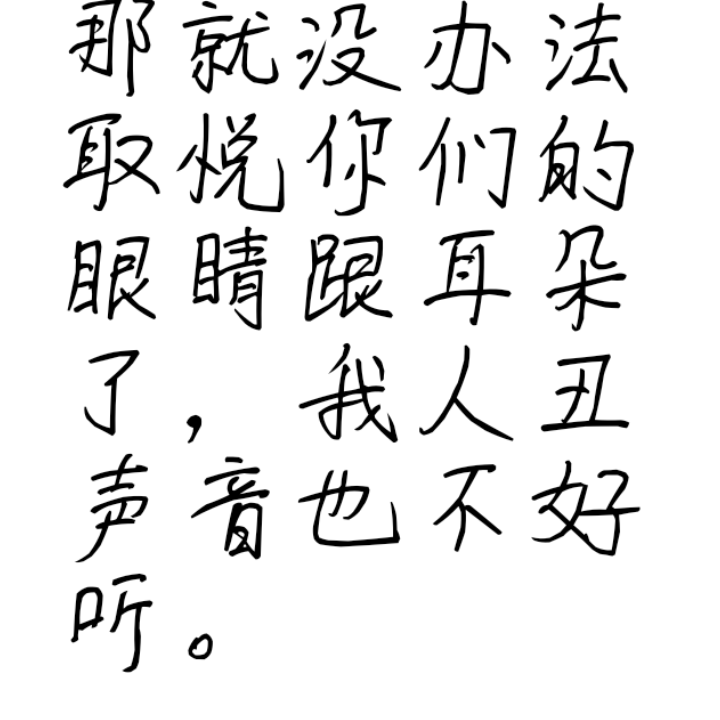 那就没办法
取悦你们的
眼睛跟耳朵
了，我人丑
声音也不好
听。